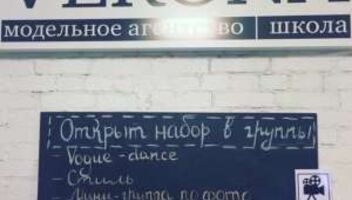 VERONA
модельное агентство | школа
Открыт набор в группы
- Vogue - dance
- Стиль
- Мини-группа по фото